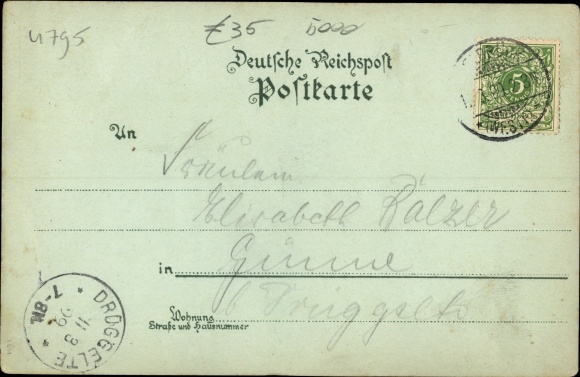 4795 £35 5000
Deutsche Reichspost
Postkarte
5
(WESTF
An
Fräulein
Elisabeth Balzer
in Günne
Drüggelte
Wohnung
Straße und Hausnummer
DRÜGGELTE
11 8 99
7-8N.